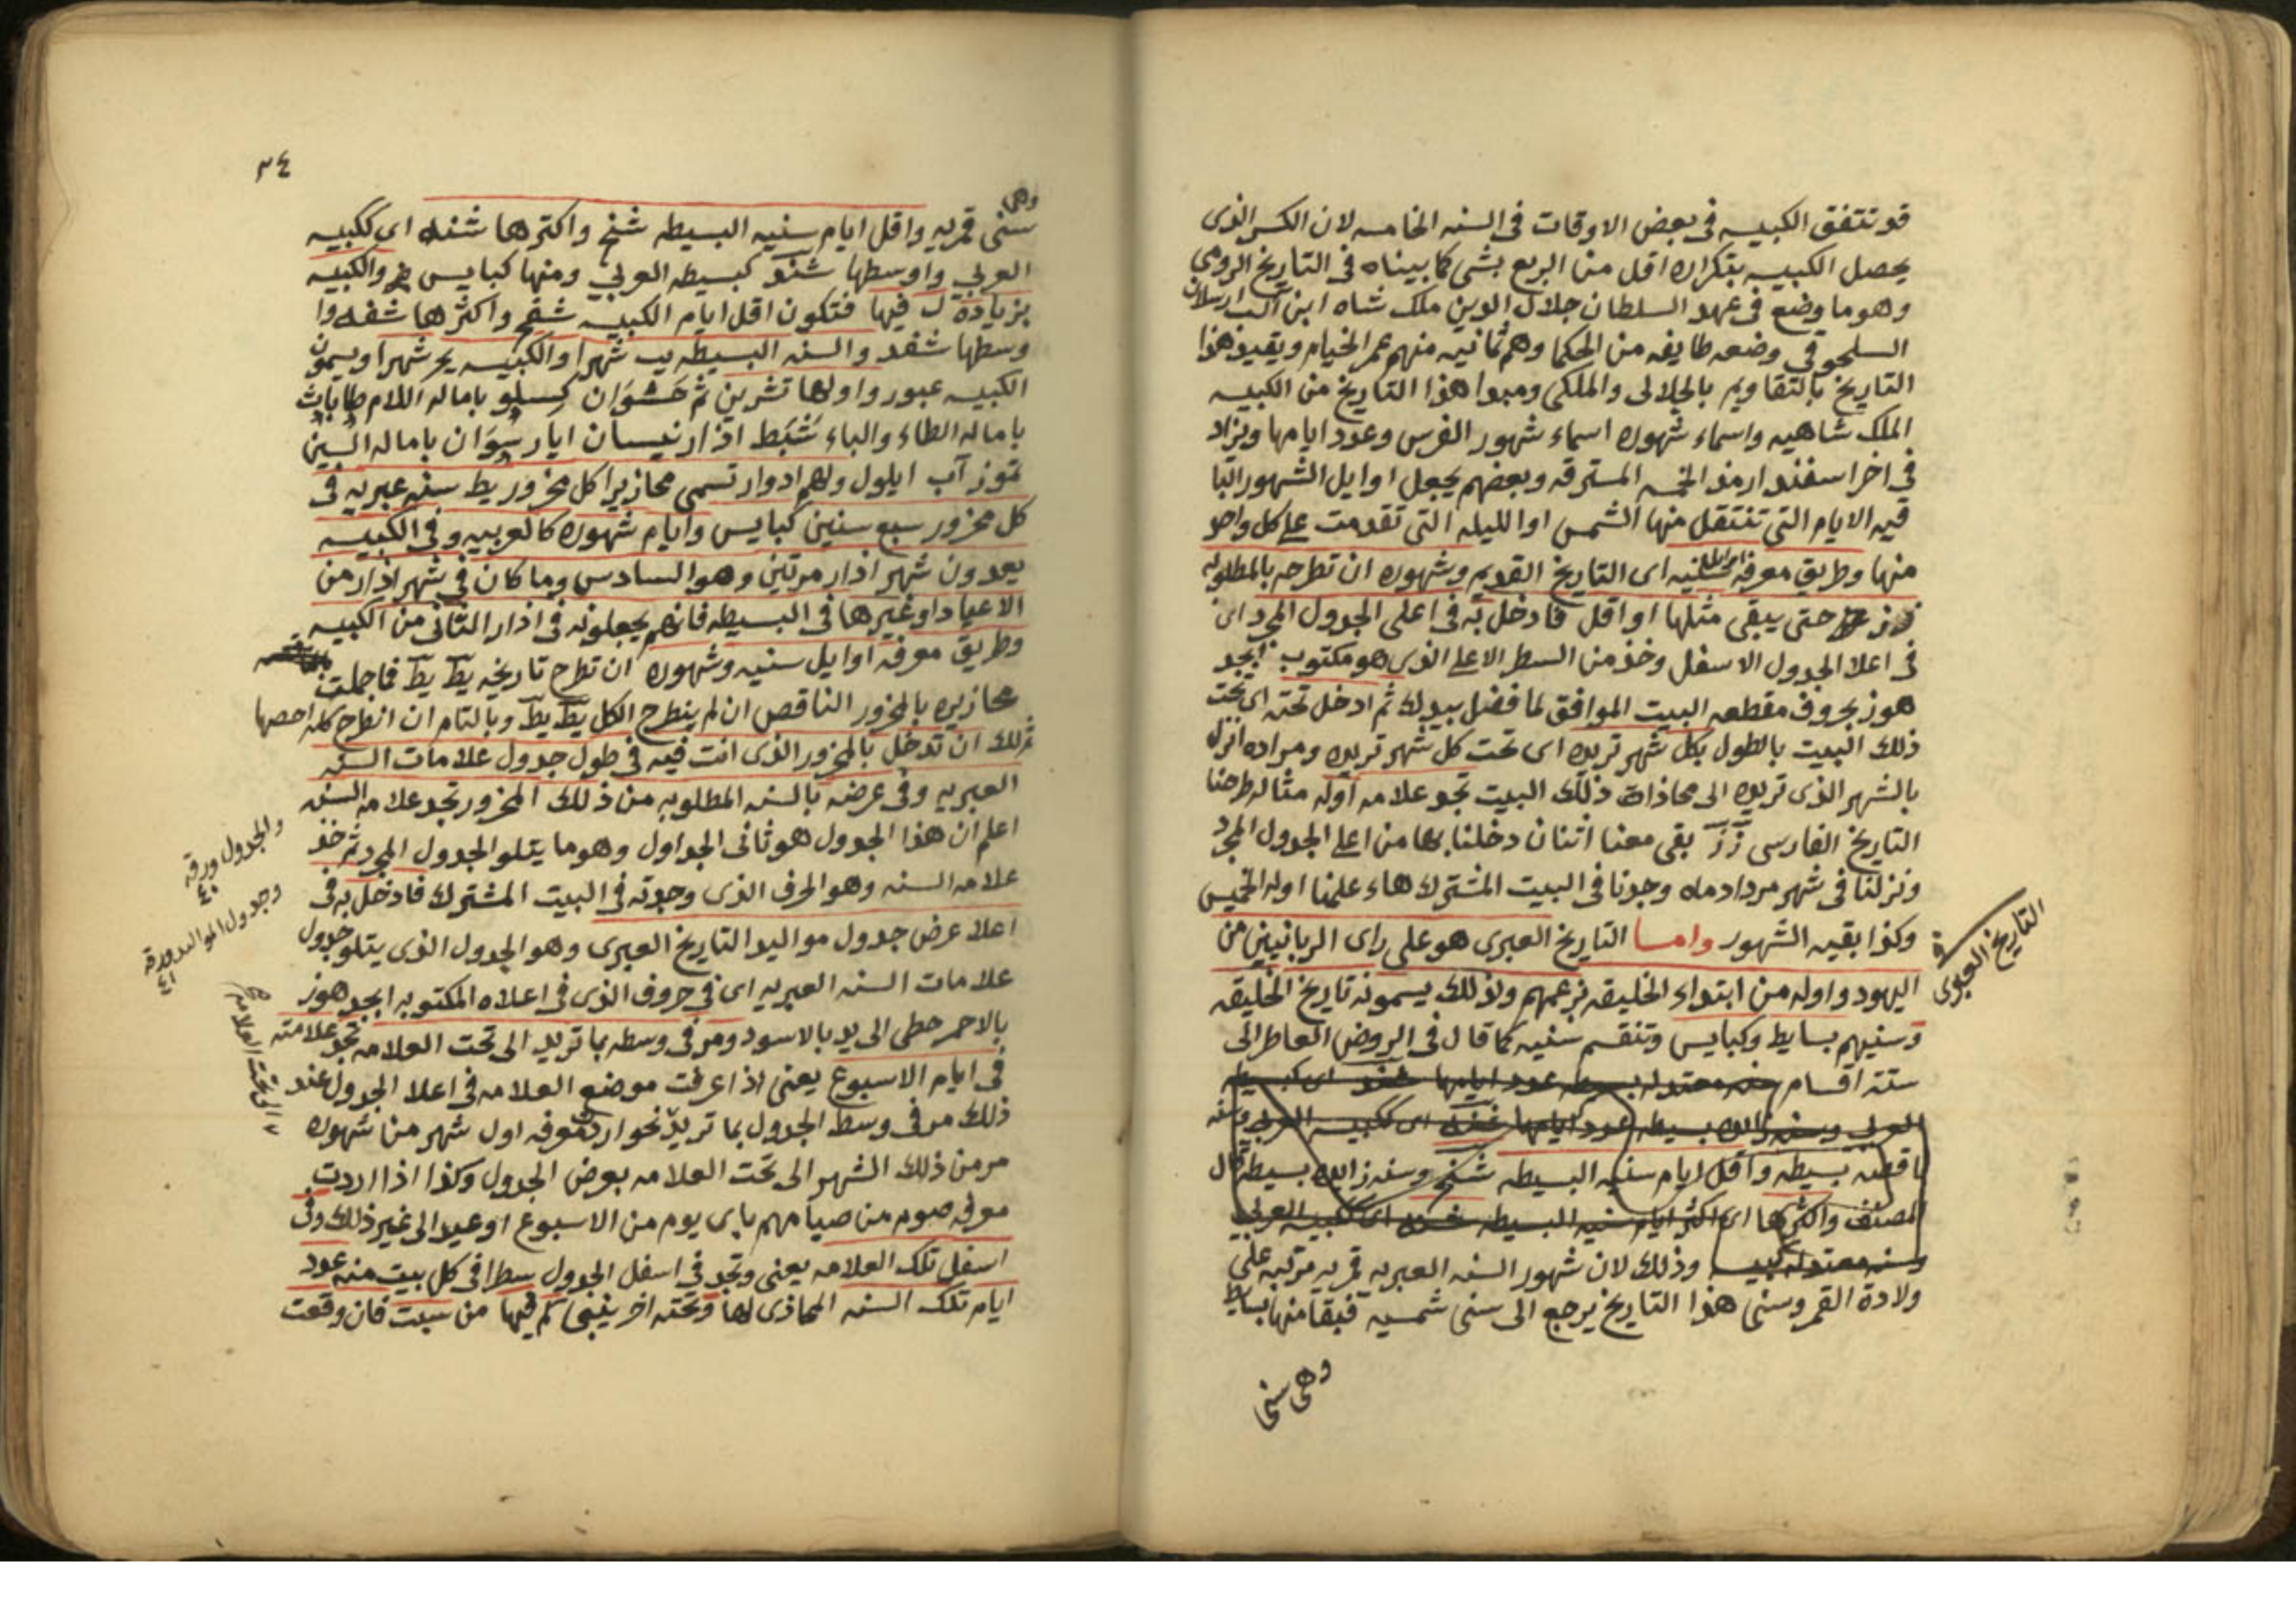 قد تتفق الكبيسه فى بعض الاوقات فى السنه الخامسه لان الكسر الذى
يحصل الكبيسه بتكراره اقل من الربع بشى كما بيناه فى التاريخ الرومى
وهو ما وضع فى عهد السلطان جلال الدين ملك شاه ابن الب ارسلان
السلجوقى وضعه طايفه من الحكما وهم ثمانيه منهم عمر الخيام ويقيد هذا
التاريخ بالتقاويم بالجلالى والملكى ومبدا هذا التاريخ من الكبيسه
الملك شاهيه واسماء شهوره اسماء شهور الفرس وعدد ايامها ويزاد
فى اخر اسفندارمذ الخمسه المسترقه وبعضهم يجعل اوايل الشهور
فيه الايام التى تنتقل منها الشمس او الليله التى تقدمت على كل واحد
منها وطريق معرفه اوايل سنيه اى التاريخ القديم وشهوره ان تطرحه بالمطلوبه
حتى يبقى مثلها او اقل فادخل به فى اعلى الجدول المجرد اى
فى اعلا الجدول الاسفل وخذ من السطر الاعلى الذى هو مكتوب ابجد
هوز بحروف مقطعه البيت الموافق لما فضل بيدك ثم ادخل تحته اى تحت
ذلك البيت بالطول بكل شهر تريده اى تحت كل شهر تريده ومراده انزل
بالشهر الذى تريده الى محاذات ذلك البيت تجد علامه اوله مثاله طرحنا
التاريخ الفارسى زز بقى معنا اثنان دخلنا بها من اعلى الجدول المجرد
ونزلنا فى شهر مردادماه وجدنا فى البيت المشترك هاء علمنا اوله الخميس
وكذا بقيه الشهور واما التاريخ العبرى هو على راى الربانيين من
اليهود واوله من ابتداء الخليقه بزعمهم ولذلك يسمونه تاريخ الخليقه
وسنيهم بسايط وكبايس وتنقسم سنيه كما قال فى الروض العاطر الى
ستة اقسام سنه معتدله بسيطه عدد ايامها شند اى كبسيطه
العربى وسنه زايده بسيطه عدد ايامها شنه اى ككبيسه العربى وسنه
ناقصه بسيطه واقل ايام سنيه البسيطه شنج وسنه زايده بسيطه قال
المصنف واكثرها اى اكثر ايام سنيه البسيطه شنه اى ككبيسه العربى
وسنه معتدله كبيسه وذلك لان شهور السنه العبريه قمريه مرتبه على
ولادة القمر وسنى هذا التاريخ يرجع الى سنى شمسيه فبقا منها بسايط
وهى سنى
التاريخ العبرى
٣٤
وهى
سنى قمريه واقل ايام سنيه البسيطه شنج واكثرها شنه اى ككبيسه
العربى واوسطها شند كبسيطه العربى ومنها كبايس والكبيسه
بزيادة ل فيها فتكون اقل ايام الكبيسه شفج واكثرها شفه وا
وسطها شفد والسنه البسيطه يب شهرا والكبيسه يج شهرا ويسمون
الكبيسه عبور واولها تشرين ثم حشوان كسلو باماله اللام طاباث
باماله الطاء والباء شبط اذار نيسان ايار سوان باماله السين
تموز آب ايلول ولهم ادوار تسمى محازير اكل محزور يط سنه عبريه فى
كل محزور سبع سنين كبايس وايام شهوره كالعربيه وفى الكبيسه
يعدون شهر اذار مرتين وهو السادس وما كان فى شهر اذار من
الاعياد او غيرها فى البسيطه فانهم يجعلونه فى اذار الثانى من الكبيسه
وطريق معرفه اوايل سنيه وشهوره ان تطرح تاريخه يط يط فاجملت
محازيره بالمحزور الناقص ان لم ينطرح الكل يط يط وبالتام ان انطرح كله احصها
ثم لك ان تدخل بالمحزور الذى انت فيه فى طول جدول علامات السنه
العبريه وفى عرضه بالسنه المطلوبه من ذلك المحزور تجد علامه السنه
اعلم ان هذا الجدول هو ثانى الجداول وهو ما يتلو الجدول المجرد ثم خذ
علامه السنه وهو الحرف الذى وجدته فى البيت المشترك فادخل به فى
اعلا عرض جدول مواليد التاريخ العبرى وهو الجدول الذى يتلو جدول
علامات السنه العبريه اى فى حروف الذى فى اعلاه المكتوبه ابجد هوز
بالاحمر حطى الى يد بالاسود ومر فى وسطه بما تريد الى تحت العلامه تجد علامته
فى ايام الاسبوع يعنى اذا عرفت موضع العلامه فى اعلا الجدول عند
ذلك مر فى وسط الجدول بما تريد نحو اردت معرفه اول شهر من شهوره
مر من ذلك الشهر الى تحت العلامه بعرض الجدول وكذا اذا اردت
معرفه صوم من صيامهم باى يوم من الاسبوع او عيد الى غير ذلك وفى
اسفل تلك العلامه يعنى وتجد فى اسفل الجدول سطرا فى كل بيت منه عدد
ايام تلك السنه المحاذى لها وتحته اخر ينبى كم فيها من سبت فان وقعت
والجدول ورقه
٤٠
وجدول المواليد ورقه
٤١